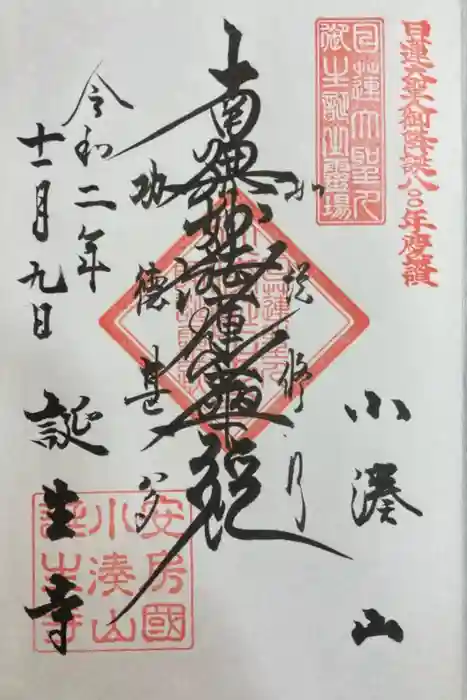 日蓮大聖人御降誕八〇〇年慶讃
日蓮大聖人
御生誕之霊場
小湊山
如説修行
南無妙法蓮華経
功徳甚多
令和二年
十一月九日
誕生寺
安房國
小湊山
誕生寺